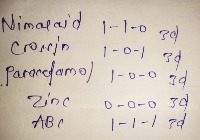 Nimapaid 1-1-0 3d
Crosin 1-0-1 3d
Paracetamol 1-0-0 3d
Zinc 0-0-0 3d
ABC 1-1-1 3d